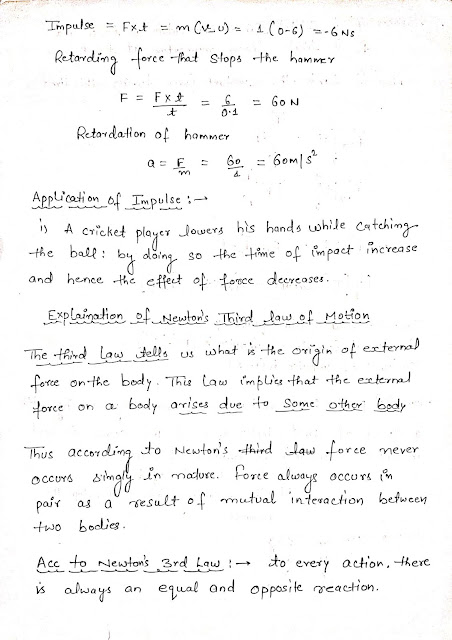 Impulse = Fxt = m (V-u) = 1 (0-6) = -6 Ns
Retarding force that stops the hammer
F = Fxt/t = 6/0.1 = 60 N
Retardation of hammer
a = F/m = 60/1 = 60m/s²
Application of Impulse :→
i) A cricket player lowers his hands while catching
the ball: by doing so the time of impact increase
and hence the effect of force decreases.
Explaination of Newton's Third law of Motion
The third Law tells us what is the origin of external
force on the body. This Law implies that the external
force on a body arises due to some other body
Thus according to Newton's third law force never
occurs singly in nature. Force always occurs in
pair as a result of mutual interaction between
two bodies.
Acc to Newton's 3rd Law :→ to every action, there
is always an equal and opposite reaction.